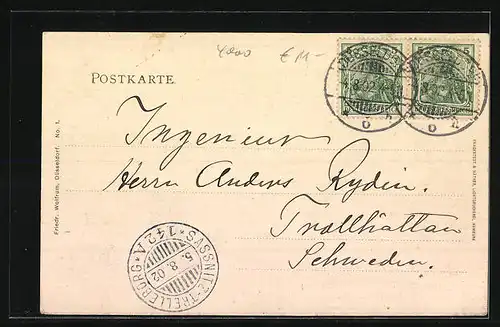 4000 € 11-
POSTKARTE.
5
DÜSSELDORF
8.02.
* o h
DÜSSELDORF
* o h
Ingenieur
Herrn Anders Rydin.
Trollhättan
Schweden.
SASSNITZ-TRELLEBORG
* 142 A *
5.8.02
Friedr. Wolfrum, Düsseldorf. No. 1.